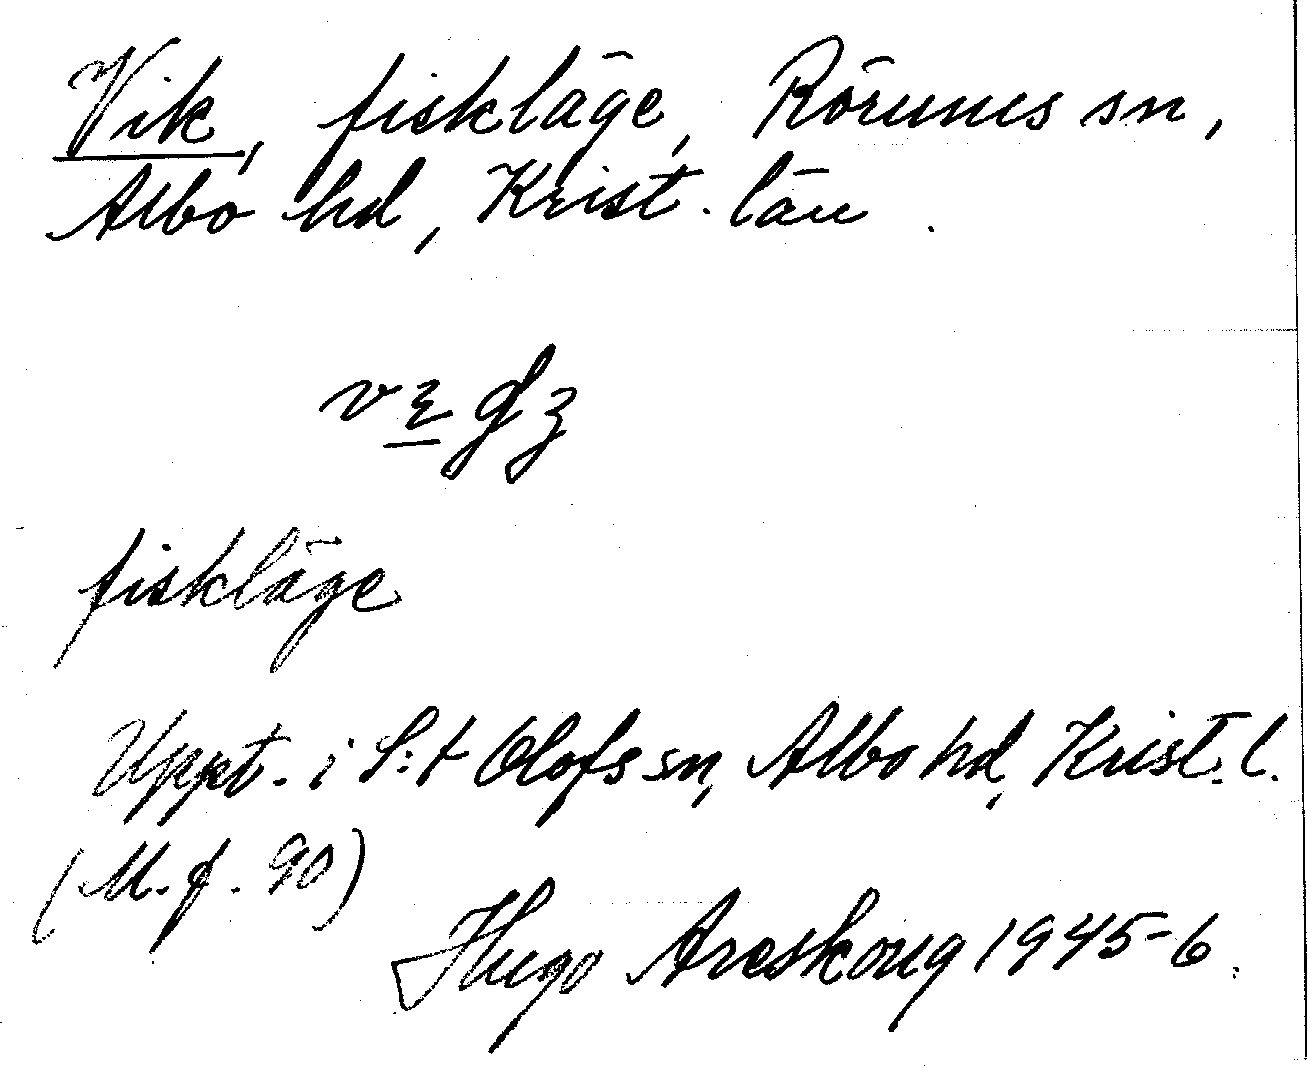 Vik, fiskläge, Rörums sn,
Albo hd, Krist. län.
fiskläge
Uppt. i S:t Olofs sn, Albo hd, Krist. l.
(M. f. 90)
Hugo Areskoug 1945-6.